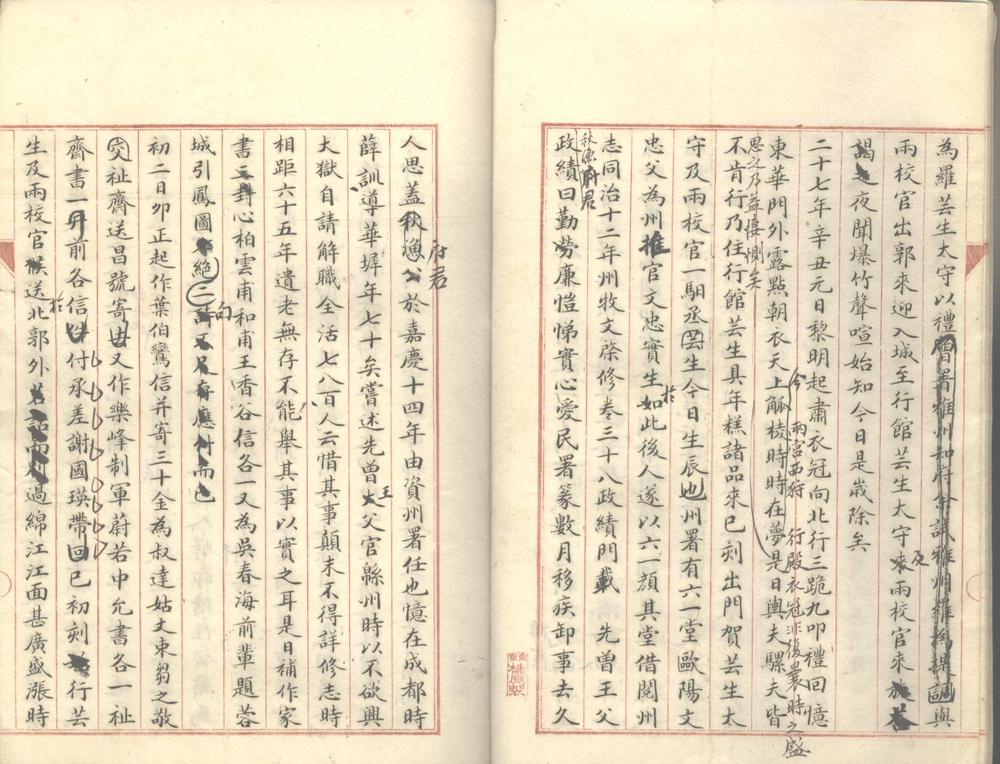 為羅芸生太守以禮曾署雅州知府余試雅州羅為提調與
兩校官出郭來迎入城至行館芸生太守來及兩校官來
謁夜聞爆竹聲喧始知今日是歲除矣
二十七年辛丑元日黎明起肅衣冠向北行三跪九叩禮回憶
東華門外露點朝衣天上觚棱時時在夢今兩宮西狩行殿衣冠非復曩時之盛思之乃益悽惻矣是日輿夫騾夫皆
不肯行乃住行館芸生具年糕諸品來已刻出門賀芸生太
守及兩校官一駔丞芸生今日生辰也州署有六一堂歐陽文
忠父為州推官文忠實生於此後人遂以六一顏其堂借閱州
志同治十二年州牧文棨修卷三十八政績門載先曾王父
秋漁府君
政績曰勤勞廉愷悌實心愛民署篆數月移疾卸事去久
人思蓋秋漁府君於嘉慶十四年由資州署任也憶在成都時
薛訓導華墀年七十矣嘗述先曾王父官緜州時以不欲興
大獄自請解職全活七八百人云惜其事顛末不得詳修志時
相距六十五年遺老無存不能舉其事以實之耳是日補作家
書三封心柏雲甫和甫王香谷信各一又為吳春海前輩題蓉
城引鳳圖二絕句
初二日卯正起作葉伯鸞信并寄三十金為叔達姑丈東芻之敬
交祉齋送昌號寄由又作樂峰制軍蔚若中允書各一祉
齋書一前各信付承差謝國瑛帶回巳初刻行芸
生及兩校官候送於北郭外過綿江江面甚廣盛漲時